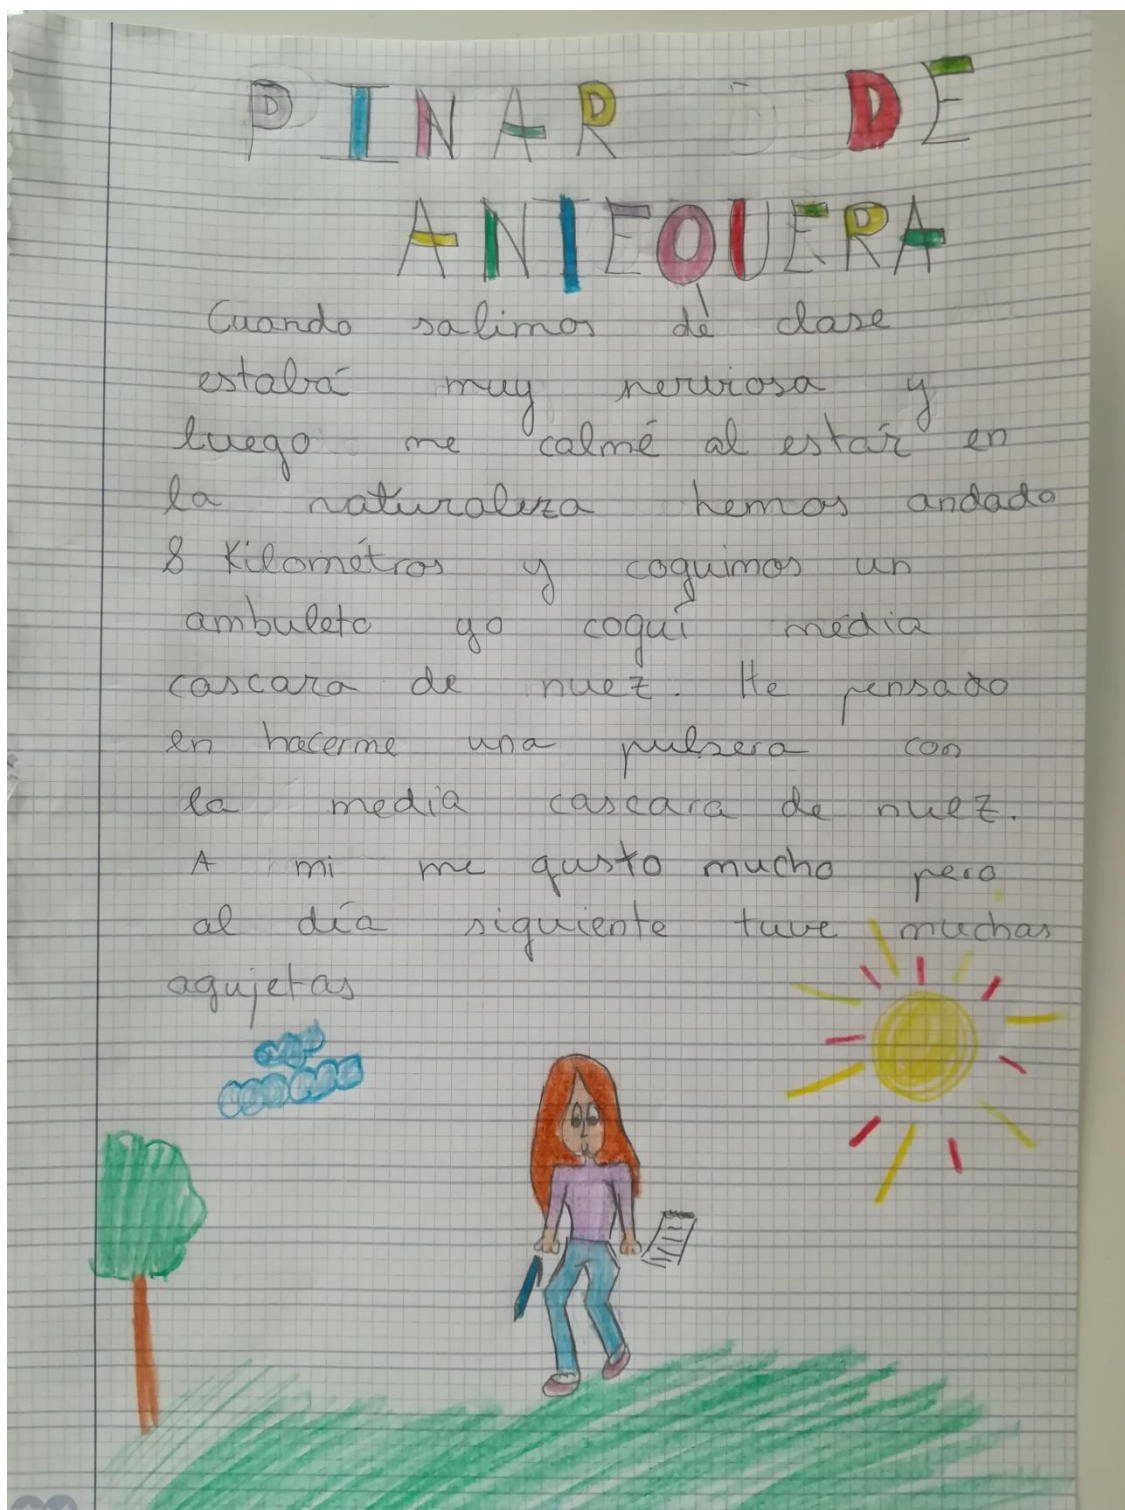 PINAR DE
ANTEQUERA
Cuando salimos de clase
estaba muy nerviosa y
luego me calmé al estar en
la naturaleza hemos andado
8 Kilometros y coguimos un
ambuleto yo coguí media
cascara de nuez. He pensado
en hacerme una pulsera con
la media cascara de nuez.
A mi me gusto mucho pero
al día siguiente tuve muchas
agujetas